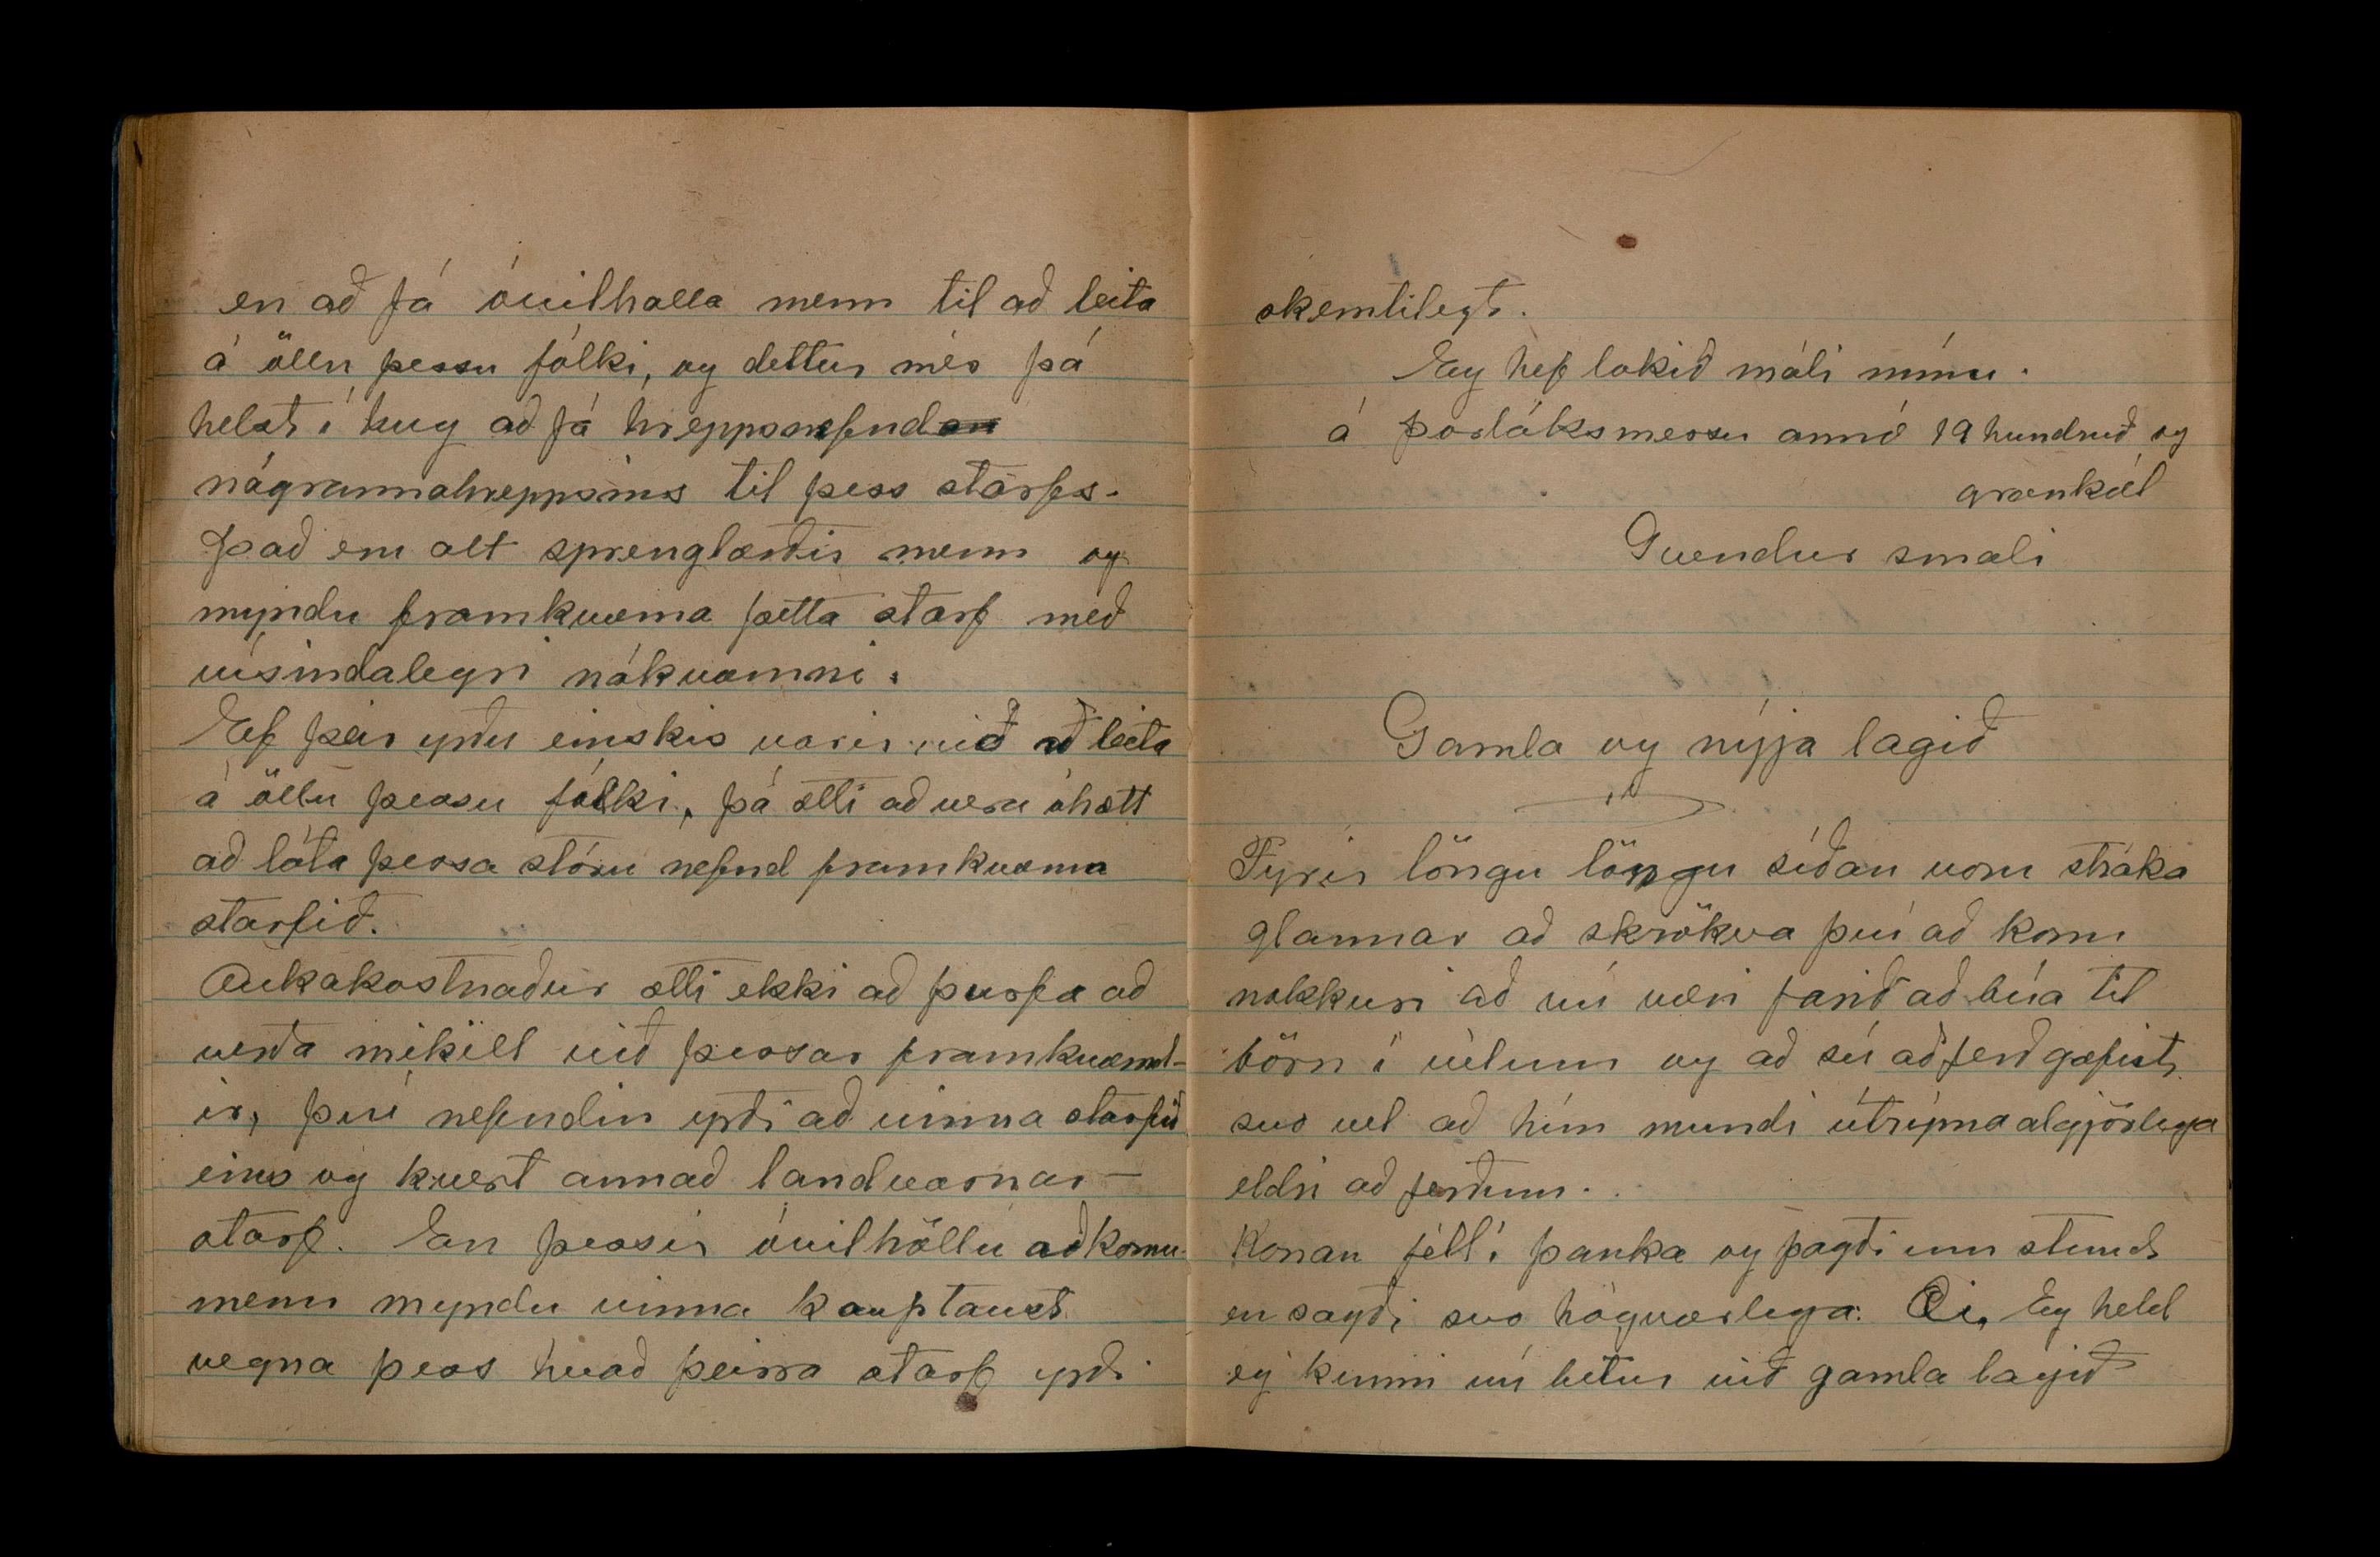 en að fá óvilhalla menn til að leita
á öllu þessu fólki, og dettur mér þá
helst í hug að fá hreppsnefnd
nágrannahreppsins til þess starfs.
Það eru alt sprenglærðir menn og
myndu framkvæma þetta starf með
vísindalegri nákvæmni.
Ef þeir yrðu einskis varir við að leita
á öllu þessu fólki, þá ætti að vera óhætt
að láta þessa stóru nefnd framkvæma
starfið.
Aukakostnaður ætti ekki að þurfa að
verða mikill við þessar framkvæmd-
ir, því nefndin yrði að vinna starfið
eins og hvert annað landvarnar-
starf. En þessir óvilhöllu aðkomu-
menn myndu vinna kauplaust
vegna þess hvað þeirra starf yrði
skemtilegt.
Eg hef lokið máli mínu.
á Þorláksmessu annó 19 hundruð og
grænkál
Gvendur smali
Gamla og nýja lagið
Fyrir löngu löngu síðan voru stráka
glannar að skrökva því að konu
nokkuri að nú væri farið að búa til
börn í vélum og að sú aðferð gæfist
svo vel að hún mundi útrýma algjörlega
eldri að ferðum.
Konan féll í þanka og þagði um stund
en sagði svo hógværlega: Oi, Eg held
eg kunni nú betur við gamla lagið